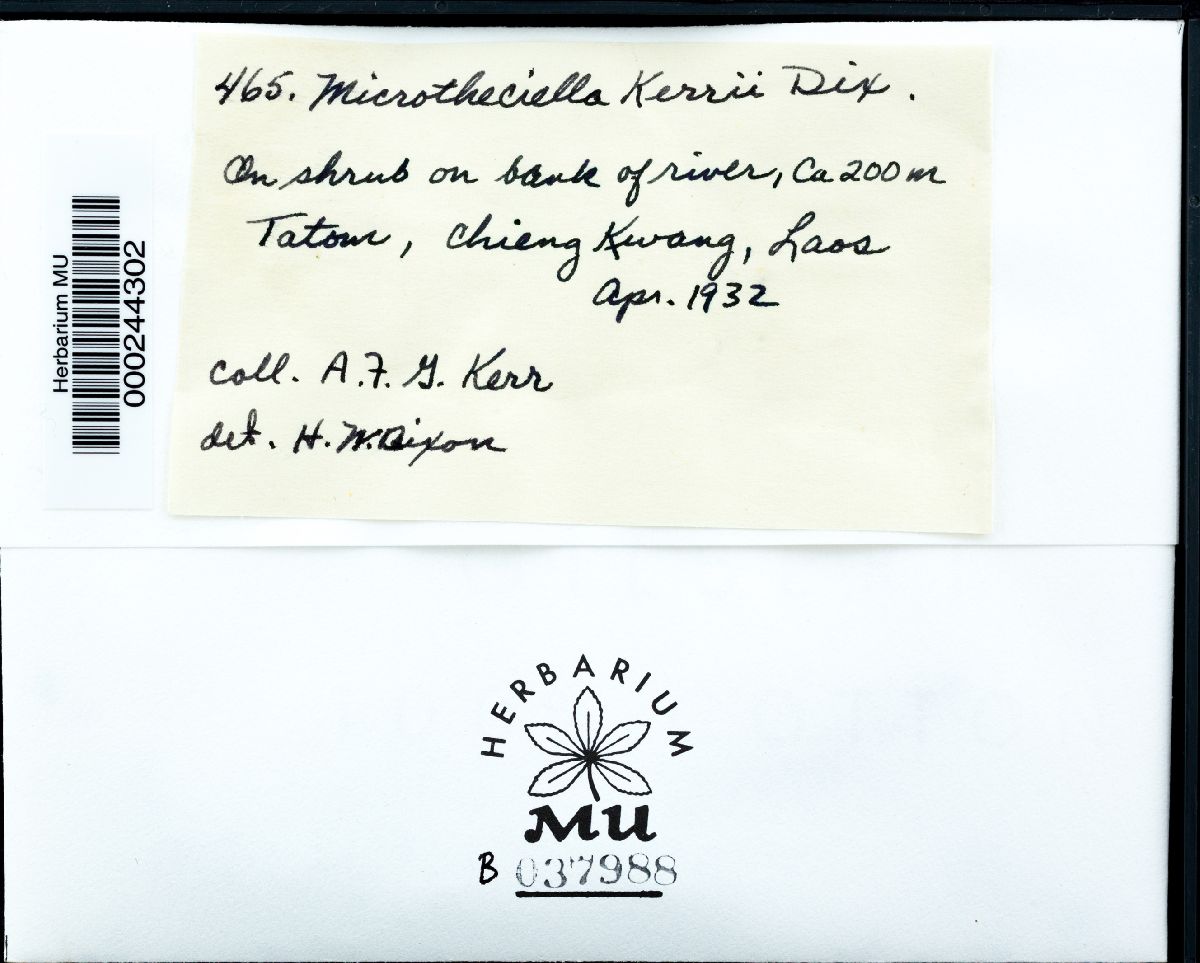 465. Microtheciella Kerrii Dix.
On shrub on bank of river, Ca 200 m
Tatom, Chieng Kwang, Laos
Apr. 1932
coll. A. F. G. Kerr
det. H. W. Dixon
Herbarium MU
000244302
HERBARIUM
MU
B 037988